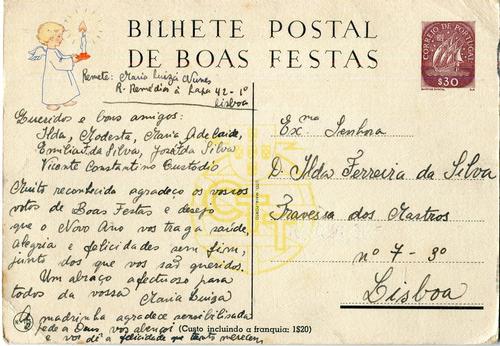 BILHETE POSTAL
DE BOAS FESTAS
CORREIO DE PORTUGAL
$30
Remete: Maria Luiza Nunes
R. Remédios à Lapa 42-1º
Lisboa
Queridos e bons amigos:
Ilda, Modesta, Maria Adelaide,
Emilia da Silva, Josefda Silva
Vicente Constantino Custódio
Muito reconhecida agradeço os vossos
votos de Boas Festas e desejo
que o Novo Ano vos traga saúde,
alegria e felicidades sem fim,
junto dos que vos são queridos.
Um abraço afectuoso para
todos da vossa
Maria Luiza
A madrinha agradece sensibilisada
pede a Deus vos abençoi
e vos dê a felicidade que tanto merecem
(Custo incluindo a franquia: 1$20)
Exma Senhora
D. Ilda Ferreira da Silva
Travessa dos Mastros
nº 7 - 3º
Lisboa
CTT